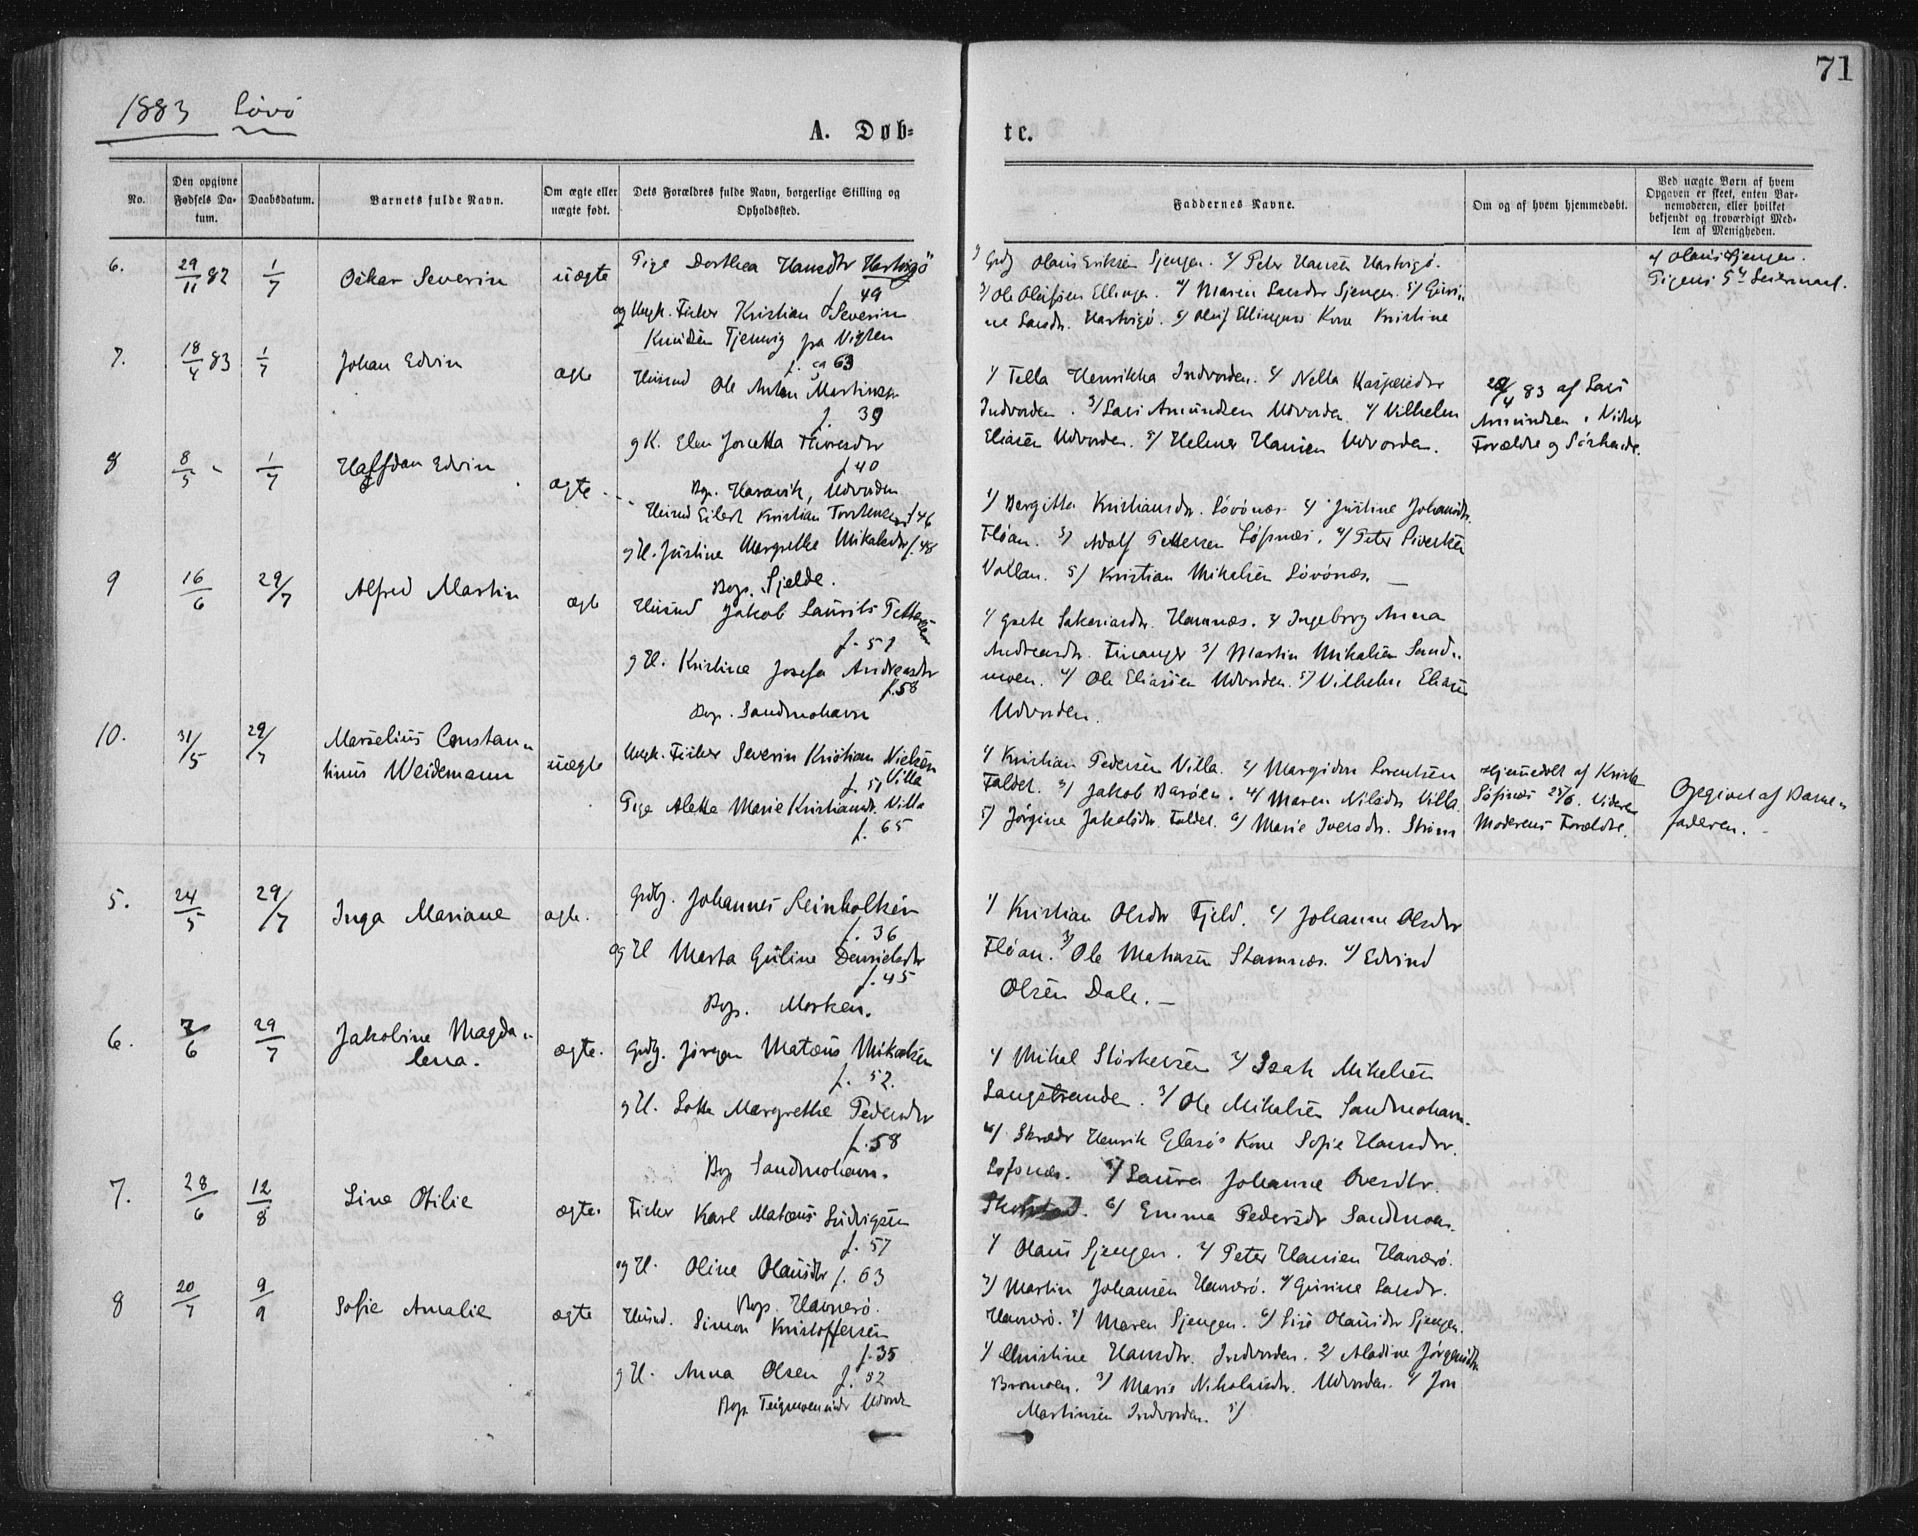 71
1883 Løvø
A. Døb-
te.
No.
Den opgivne Fødsels Da-
tum.
Daabsdatum.
Barnets fulde Navn.
Om ægte eller
uægte født.
Dets Forældres fulde Navn, borgerlige Stilling og
Opholdssted.
Faddernes Navne.
Om og af hvem hjemmedøbt.
Ved uægte Børn af hvem
Opgaven er skeet, enten Bar-
nemoderen, eller hvilket
bekjendt og troværdigt Med-
lem af Menigheden.
6.
29/11 82
1/7
Oskar Severin
uægte
Pige Dorthea Hansdtr Hartvigø
f. 49
og Ungk. Fisker Kristian Severin
Knudsen Tjennvig fra Vigten
f. ca 63
1/ Grdbg Olaus Eriksen Sjengen. 2/ Peter Hansen Hartvigø.
3/ Ole Olufsen Ellingen. 4/ Maren Larsdtr Sjengen. 5/ Guri-
ne Larsdtr. Hartvigø. 6/ Oluf Ellingens Kone Kristine
af Olaus Sjengen.
Pigens 5te Leiermaal.
7.
18/4 83
1/7
Johan Edvin
ægte
Husmd Ole Anton Martinsen
f. 39
g K. Elen Josetta Thoresdtr
f. 40
Bop. Haravik, Udvorden
1/ Tella Henrikka Indvorden. 2/ Nella Kaspersdtr
Indvorden. 3/ Lars Amundsen Udvorden. 4/ Vilhelm
Eliasen Udvorden. 5/ Helmer Hansen Udvorden.
29/4 83 af Lars
Amundsen, Vidner
Forældre og Søskende.
8
8/5 "
1/7
Halfdan Edvin
ægte.
Husmd Eilert Kristian Torstensen f. 46
g H. Justine Margrethe Mikalsdtr f. 48
Bop. Sjelde.
1/ Bergitta Kristiansdtr. Løvønæs. 2/ Justine Johansdtr.
Fløan. 3/ Adolf Pettersen Løfsnæs. 4/ Peter Sivertsen
Vollan. 5/ Kristian Mikelsen Løvønæs. —
9
16/6
29/7
Alfred Martin
ægte
Husmd Jakob Laurits Pettersen
f. 51
g H. Kristine Josefa Andreasdtr
f. 58
Bop. Sandmohavn
1/ Grete Sakariasdtr. Hamnæs. 2/ Ingeborg Anna
Andreasdtr. Finanger 3/ Martin Mikalsen Sand-
moen. 4/ Ole Eliasen Udvorden. 5/ Vilhelm Eliasen
Udvorden.
10.
31/5
29/7
Marselius Constan-
tinus Weidemann
uægte
Ungk. Fisker Severin Kristian Nielsen
Villa
f. 51
Pige Alette Marie Kristiansdtr. Villa
f. 65
1/ Kristian Pedersen Villa. 2/ Margido Lorentsen
Faldet. 3/ Jakob Barøen. 4/ Maren Nilsdtr Villa
5/ Jørgine Jakobsdtr. Faldet. 6/ Marie Iversdtr. Strøm
Hjemmedøbt af Kristen
Løfsnæs 25/6. Vidner
Moderens Forældre.
Opgivet af Barne-
faderen. -
5.
24/5
29/7
Inga Mariane
ægte.
Grdbg. Johannes Reinholtsen
f. 36
og H Marta Guline Danielsdtr
f. 45
Bop. Morken.
1/ Kristian Olsdtr Fjeld. 2/ Johanne Olsdtr
Fløan. 3/ Ole Mathisen Stamnæs. 4/ Edvind
Olsen Dale. —
6.
7/6
29/7
Jakobine Magda-
lena.
ægte.
Grdbg. Jørgen Matæus Mikalsen
f. 52.
g H. Lotte Margrethe Pedersdtr
f. 58
Bop Sandmohavn.
1/ Mikal Størkersen 2/ Isak Mikelsen
Langstranden. 3/ Ole Mikelsen Sandmohavn
4/ Skræder Henrik Glasøs Kone Sofie Hansdtr.
Løfsnæs. 5/ Laura Johanne Ovesdtr.
6/ Emma Pedersdtr Sandmoen.
7.
28/6
12/8
Line Otilie
ægte.
Fisker Karl Matæus Ludvigsen
f. 57
og H. Oline Olausdtr f. 63
Bop. Havnerø.
1/ Olaus Sjengen. 2/ Peter Hansen Havnerø.
3/ Martin Johansen Havnerø. 4/ Gurine Larsdtr.
Havnerø. 5/ Maren Sjengen. 6/ Lise Olausdtr Sjengen.
8
20/7
9/9
Sofie Amalie
ægte
Husmd. Simon Kristoffersen
f. 35
g H. Anna Olsen f. 32
Bop. Teigmoen under Udvord.
1/ Christine Hansdtr. Indvorden. 2/ Aladine Jørgensdtr
Bromoen. 3/ Marie Nikolaisdtr. Udvorden. 4/ Jon
Martinsen Indvorden. 5/